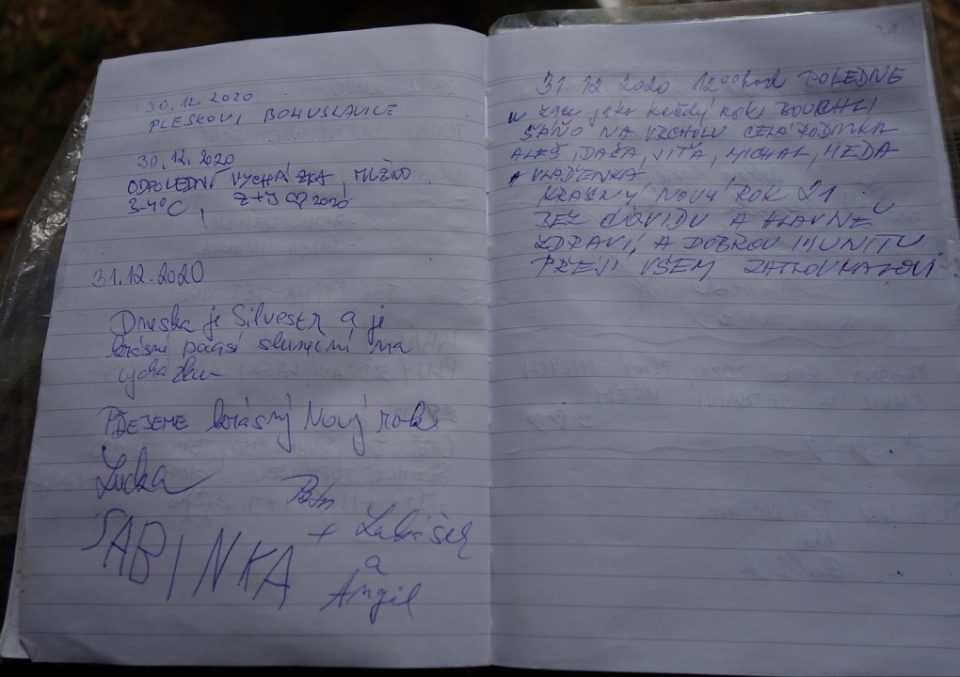 30.12.2020
PLESKOVI BOHUSLAVICE
30.12.2020
ODPOLEDNÍ VYCHÁZKA, MLŽNO
3-4°C, Z+J ♡ 2020
31.12.2020
Dneska je Silvestr a je
krásní počasí sluneční na
vycházku
PŘEJEME krásný Nový rok
Lucka
SABINKA
+
a
Angil
31
31.12.2020 12⁰⁰hod POLEDNE
jako každý rok BOUCHLI
ŠÁŇO NA VRCHOLU CELÁ RODINKA
ALEŠ, DÁŠA, VÍŤA, MICHAL, MEĎA
A VLAĎENKA
KRÁSNÝ NOVÝ ROK 21
BEZ COVIDU A HLAVNĚ
ZDRAVÍ, A DOBROU IMUNITU
PŘEJÍ VŠEM